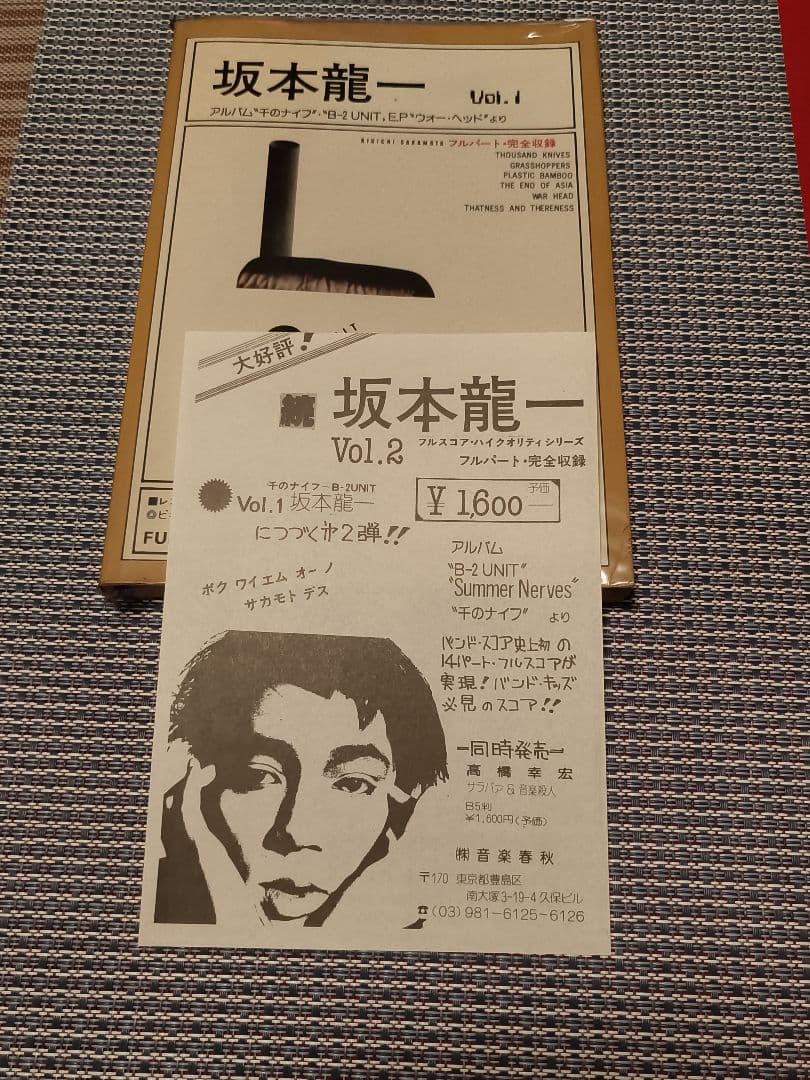 坂本龍一 Vol.1
アルバム“千のナイフ”・“B-2 UNIT, E.P“ウォー・ヘッド”より
RIUICHI SAKAMOTO フルパート・完全収録
THOUSAND KNIVES
GRASSHOPPERS
PLASTIC BAMBOO
THE END OF ASIA
WAR HEAD
THATNESS AND THERENESS
FU
大好評!
続 坂本龍一
Vol.2 フルスコア・ハイクオリティシリーズ
フルパート・完全収録
千のナイフ－B-2UNIT
Vol.1 坂本龍一
につづく第2弾!!
予価
¥1,600－
ボク ワイエム オーノ
サカモト デス
アルバム
“B-2 UNIT”
“Summer Nerves”
“千のナイフ” より
バンド・スコア史上初の
14パート・フルスコアが
実現! バンド・キッズ
必見のスコア!!
－同時発売－
高橋幸宏
サラバァ & 音楽殺人
B5判
¥1,600円(予価)
㈱音楽春秋
〒170 東京都豊島区
南大塚3-19-4久保ビル
☎(03)981-6125-6126